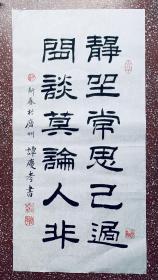 靜坐常思己過
閒談莫論人非
新春於廣州 譚慶孝書